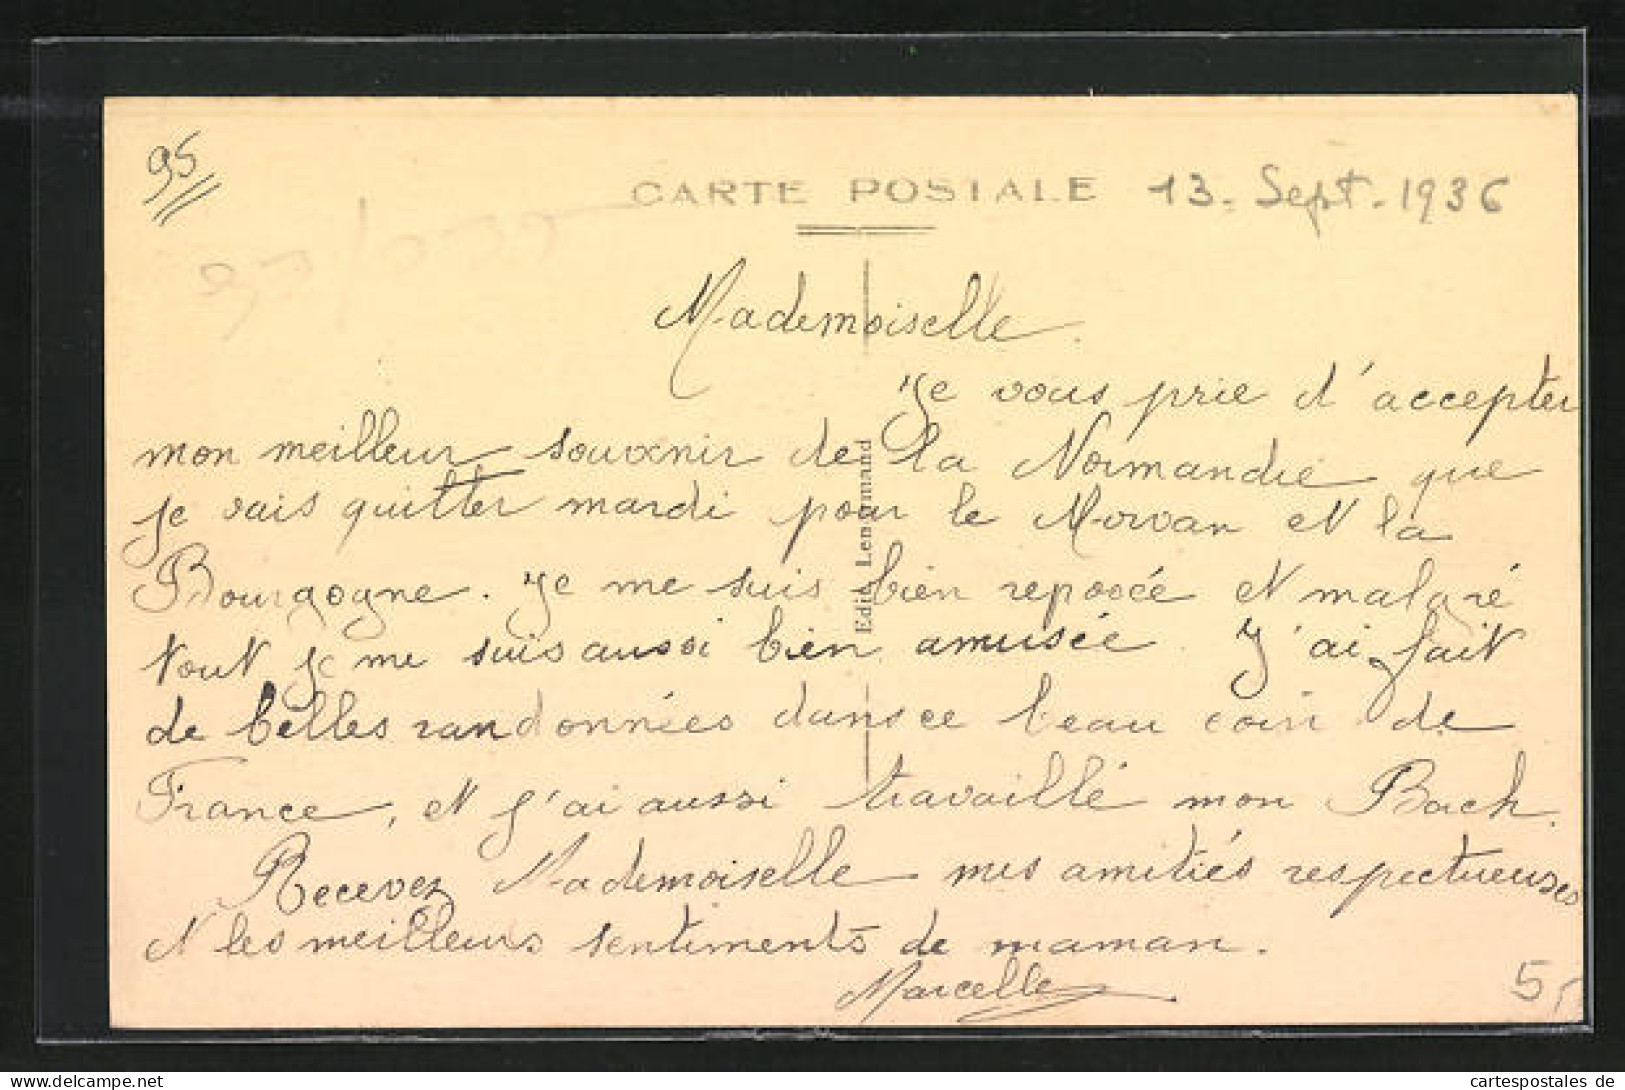 95
CARTE POSTALE 13. Sept. 1936
Mademoiselle.
Je vous prie d'accepter
mon meilleur souvenir de la Normandie que
je vais quitter mardi pour le Morvan et la
Bourgogne. Je me suis bien reposée et malgré
tout je me suis aussi bien amusée. J'ai fait
de belles randonnées dans ce beau coin de
France, et j'ai aussi travaillé mon Bach.
Recevez Mademoiselle mes amitiés respectueuses
et les meilleurs sentiments de maman.
Marcelle
Edit. Lenormand
www.cartespostales.de